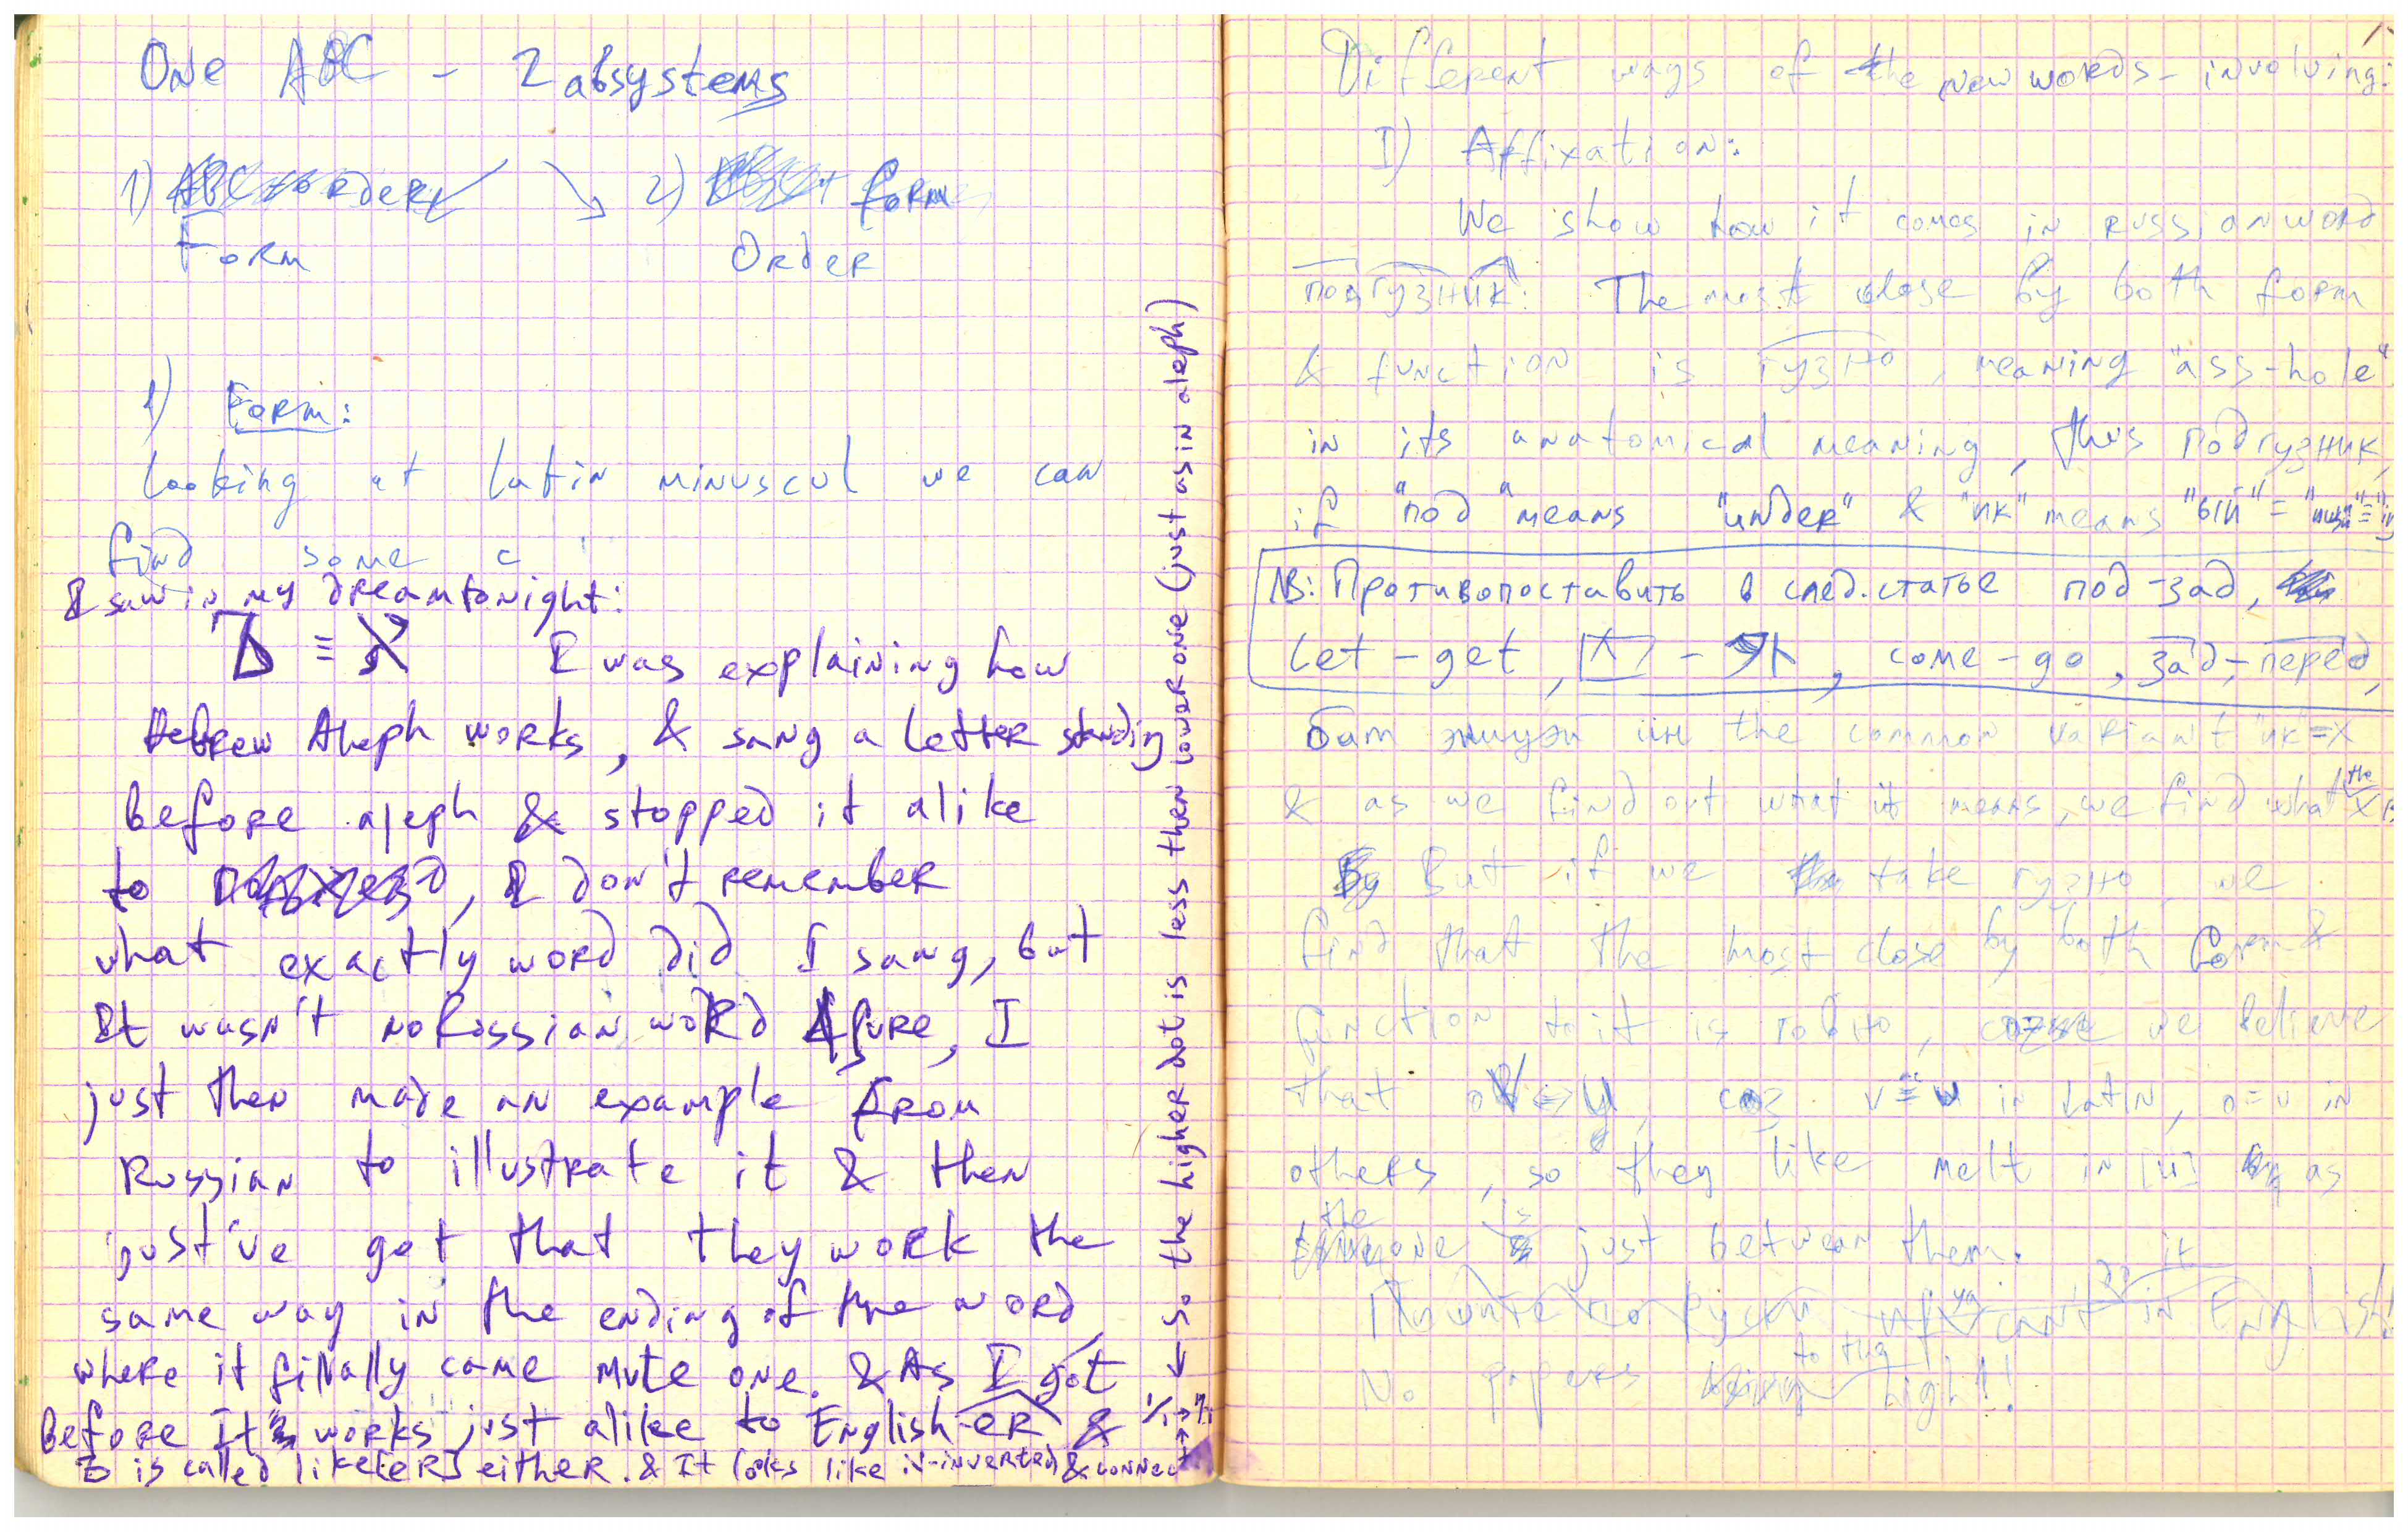 One ABC - 2 absystems
1) order 2) form
Form Order
1) Form:
looking at latin minuscul we can
find some c
I saw in my dream tonight:
Ъ ≡ א I was explaining how
Hebrew Aleph works, & sang a letter standing
before aleph & stopped it alike
to , I don't remember
what exactly word did I sang, but
It wasn't no Russian word fure, I
just then made an example from
Russian to illustrate it & then
just've got that they work the
same way in the ending of the word
where it finally came mute one. & As I got
before It works just alike to English -er &
Ъ is called like [er] either. & It looks like is inverted & connect
← so the higher dot is less then lower one (just as in aleph)
Different ways of the new words - involving:
I) Affixation:
We show how it comes in russian word
подгузник: The most close by both form
& function is гузно, meaning "ass-hole"
in its anatomical meaning, thus подгузник,
if "под" means "under" & "ик" means "ый" =
NB: Противопоставить в след. статье под-зад,
let-get, - 外, come-go, зад-перед,
бат the common variant "ик"=x
& as we find out what it means, we find what the x is
But if we take гузно we
find that the most close by both form &
function to it is говно, we believe
that v≡u in latin, o=u in
others, so they like melt in [u] as
the one is just between them.
can't it in English!
No papers to the high!!